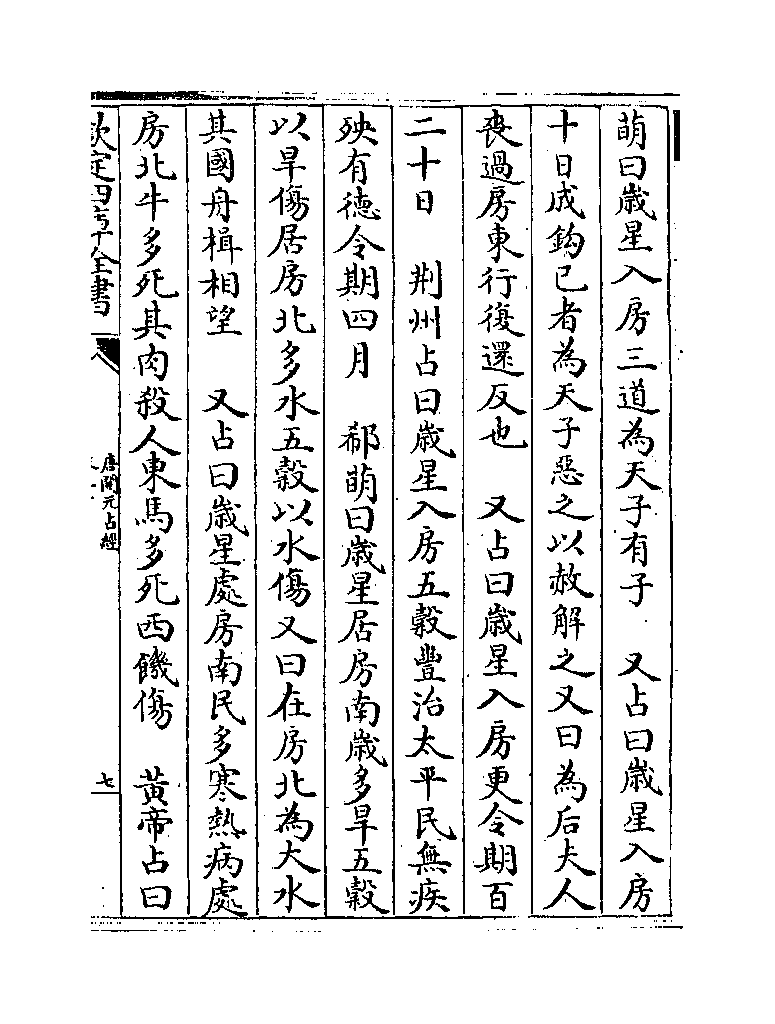 萌曰歳星入房三道為天子有子　又占曰歳星入房
十日成鈎已者為天子惡之以赦解之又曰為后夫人
喪過房東行復還反也　又占曰歳星入房更令期百
二十日　荆州占曰歳星入房五穀豐治太平民無疾
殃有德令期四月　郗萌曰歳星居房南歳多旱五穀
以旱傷居房北多水五穀以水傷又曰在房北為大水
其國舟楫相望　又占曰歳星處房南民多寒熱病處
房北牛多死其肉殺人東馬多死西饑傷　黃帝占曰
欽定四庫全書
唐開元占經
七